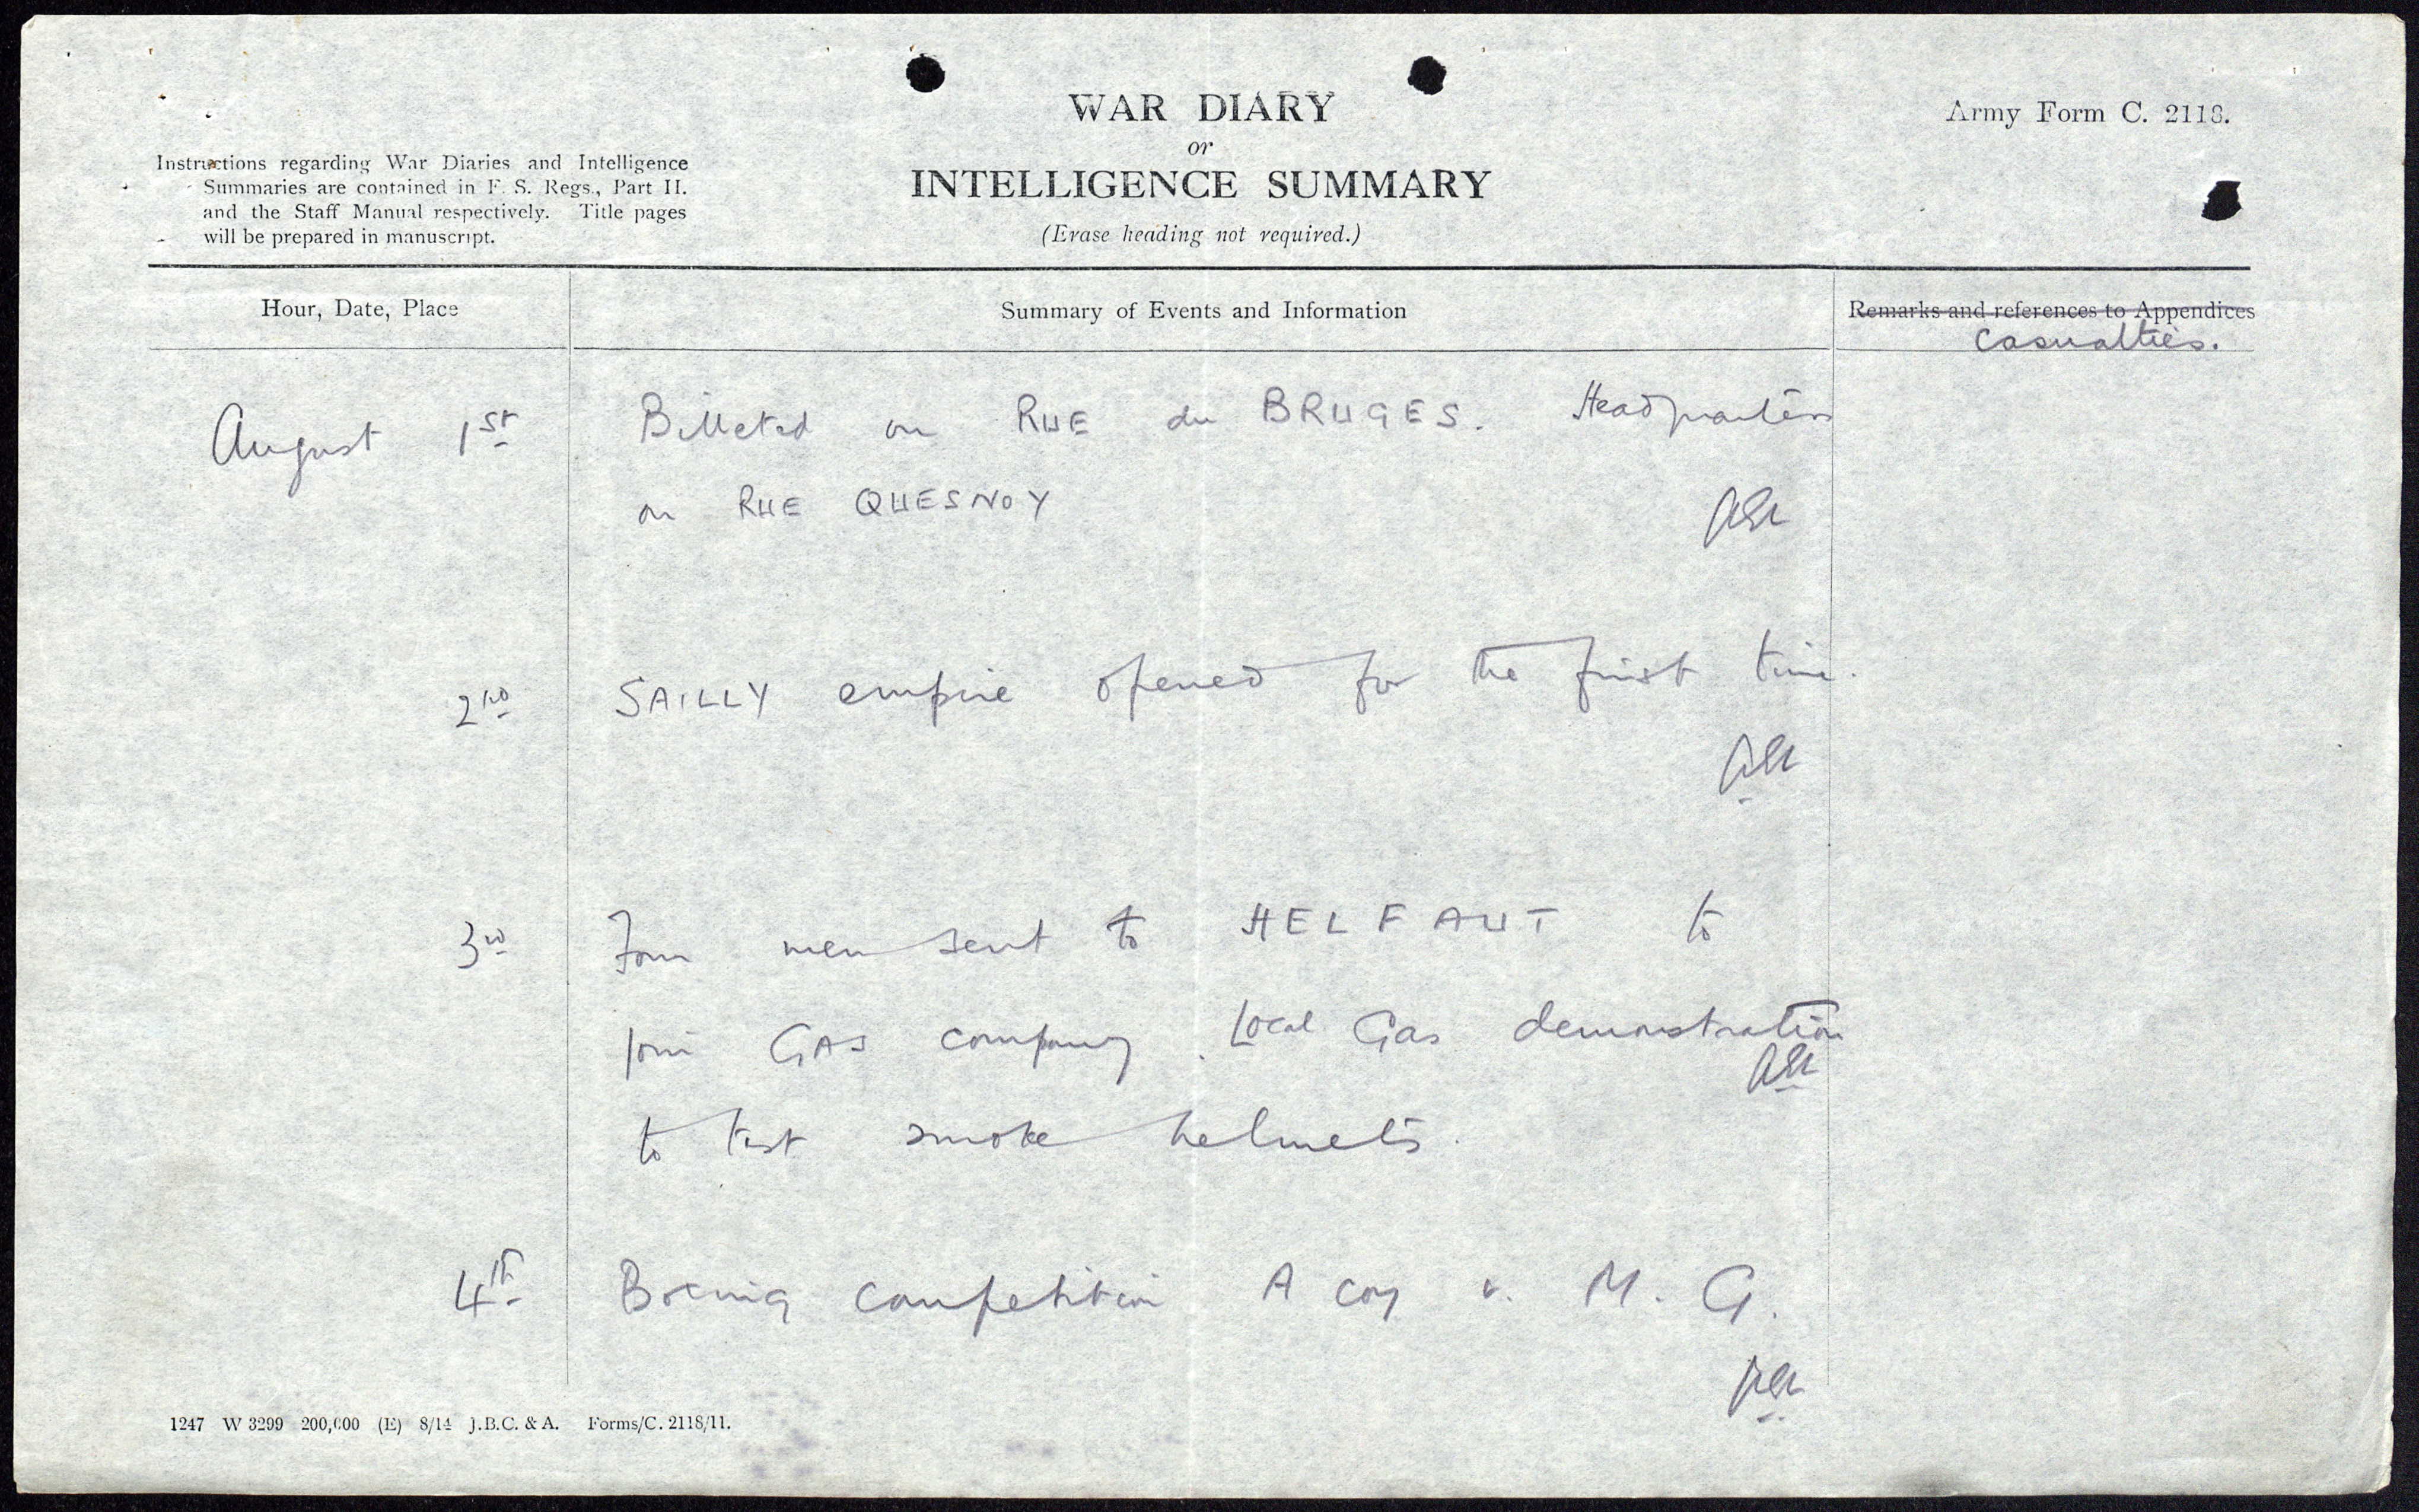 WAR DIARY
or
INTELLIGENCE SUMMARY
(Erase heading not required.)
Army Form C. 2118.
Instructions regarding War Diaries and Intelligence
Summaries are contained in F. S. Regs., Part II.
and the Staff Manual respectively. Title pages
will be prepared in manuscript.
Hour, Date, Place
Summary of Events and Information
Remarks and references to Appendices
Casualties.
August 1st Billeted on RUE du BRUGES. Headquarters
on RUE QUESNOY
2nd SAILLY empire opened for the first time.
3rd Four men sent to HELFAUT to
join GAS company. Local Gas demonstration
to test smoke helmets.
4th Boxing competition A coy v. M. G.
1247 W 3299 200,000 (E) 8/14 J.B.C. & A. Forms/C. 2118/11.